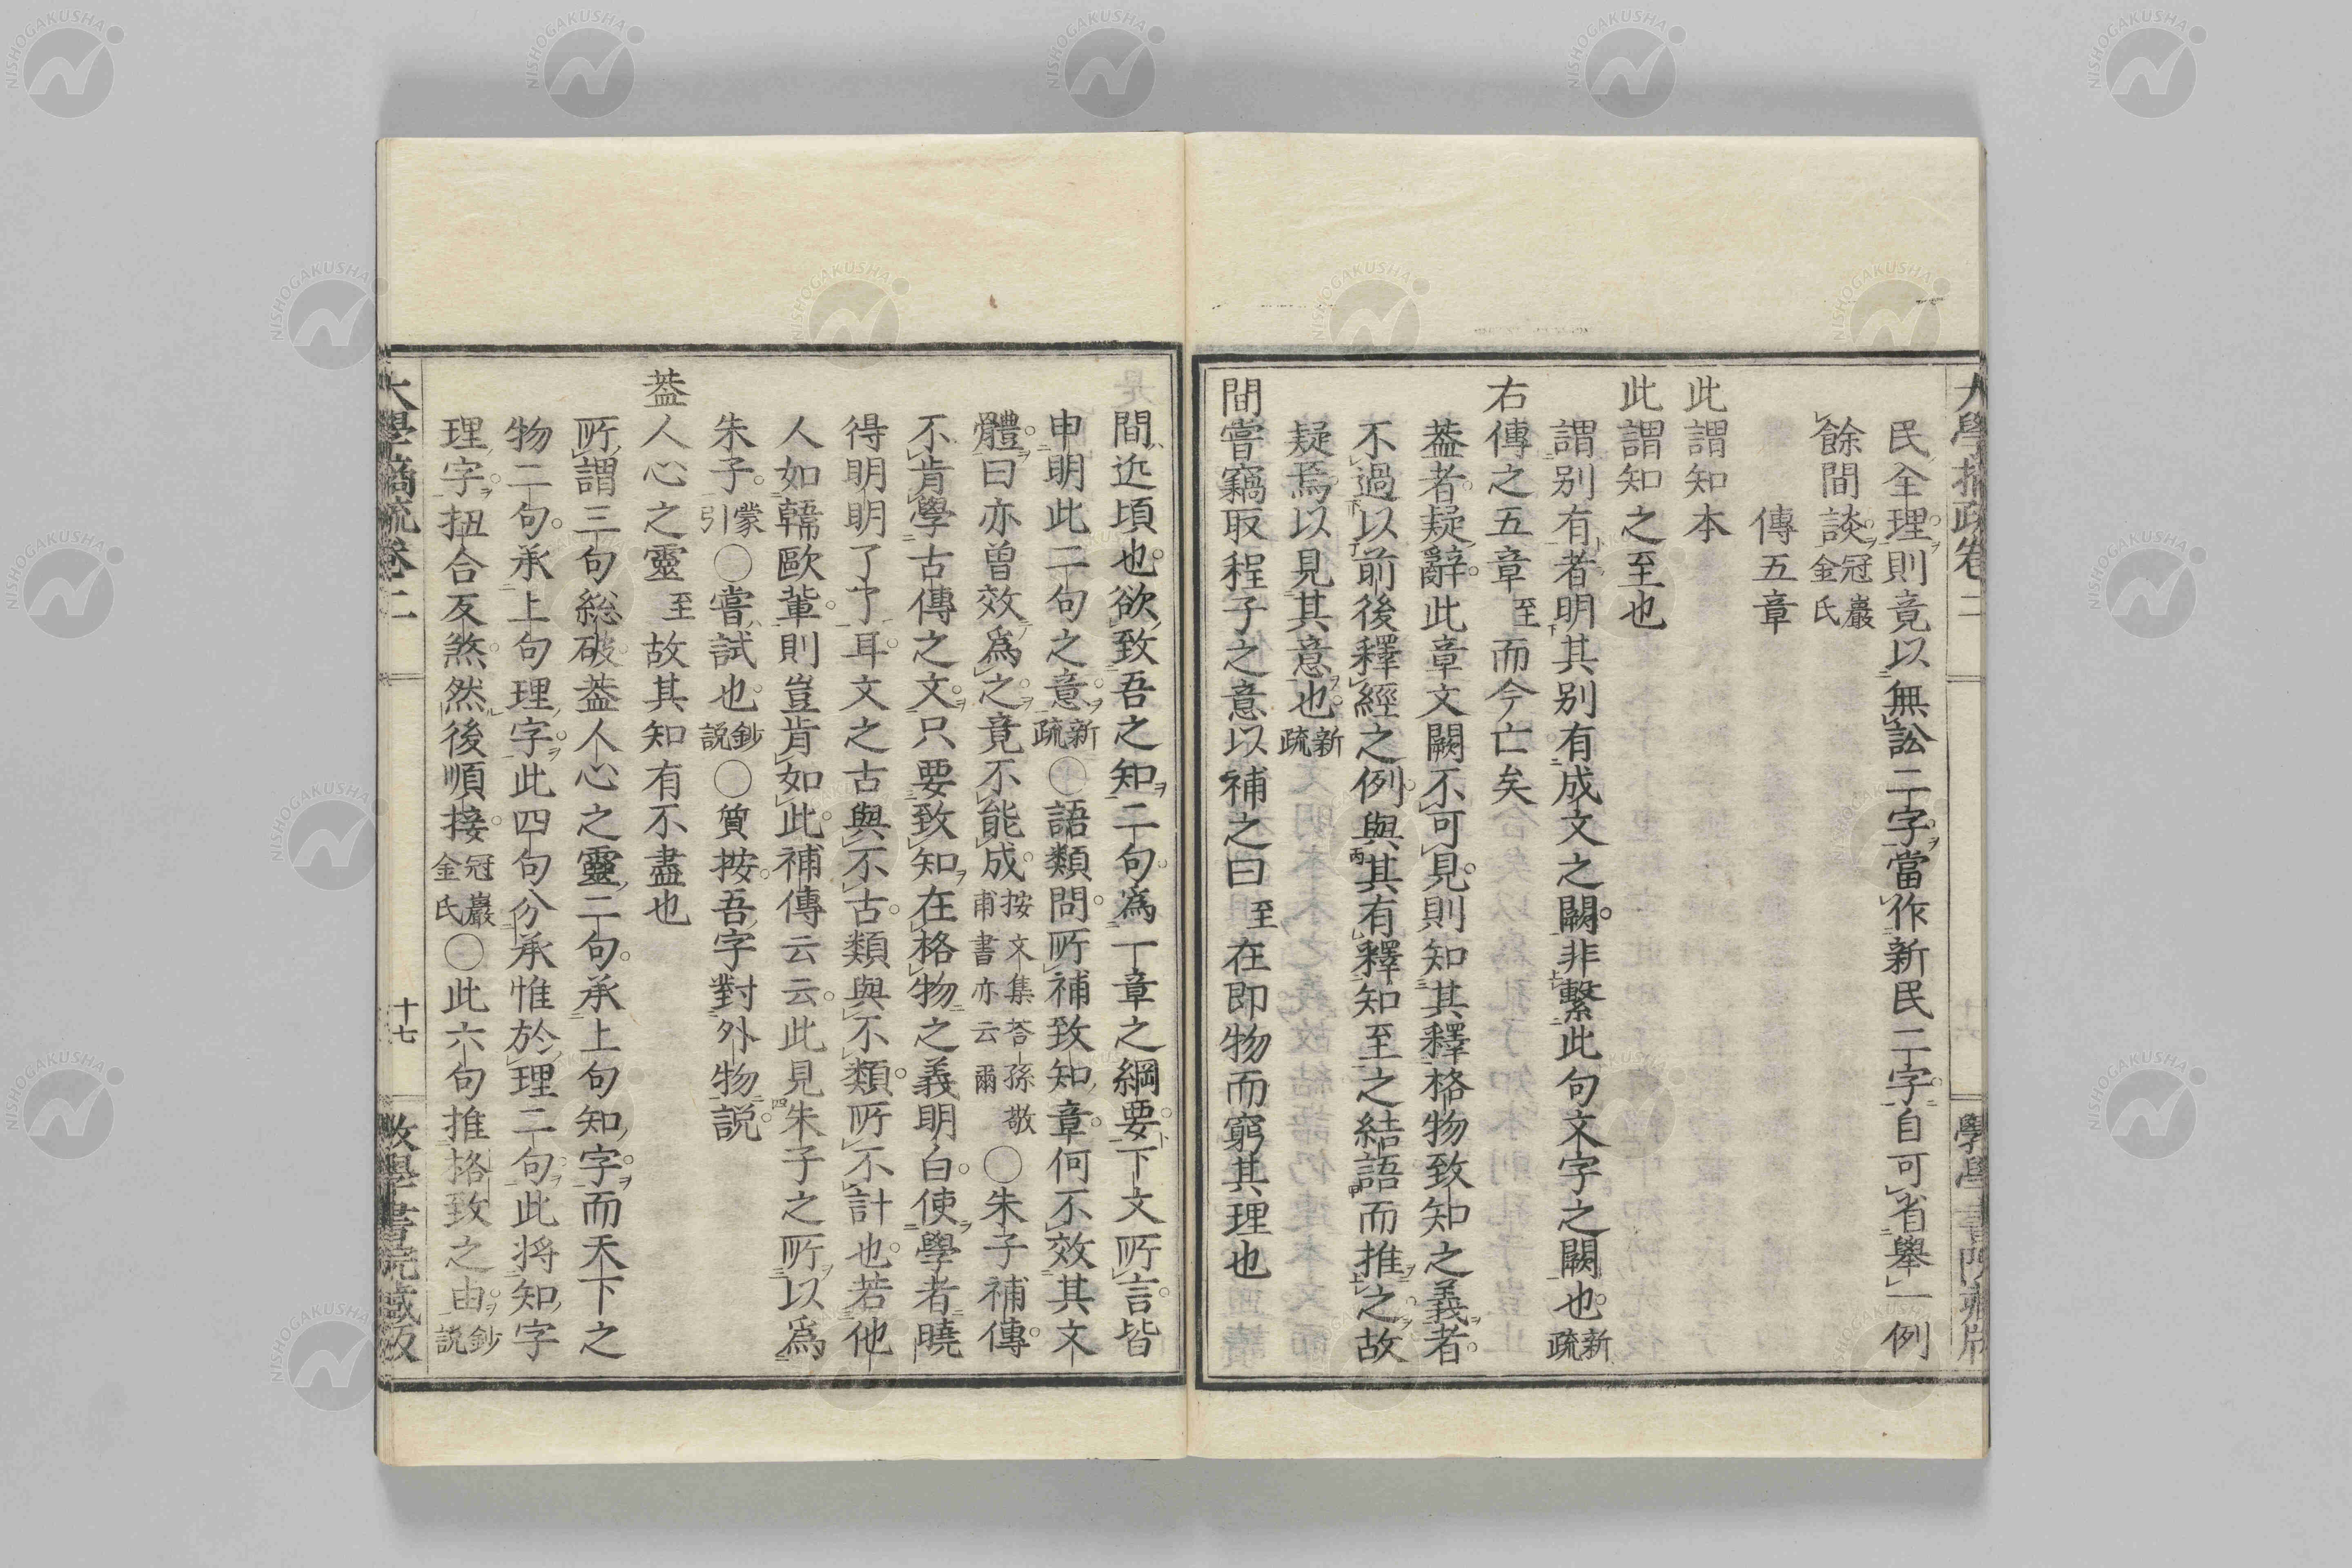 民全理則竟以無訟二字當作新民二字自可省舉一例
餘間談冠巖金氏
傳五章
此謂知本
此謂知之至也
謂別有者明其別有成文之闕非繫此句文字之闕也新疏
右傳之五章至而今亡矣
蓋者疑辭此章文闕不可見則知其釋格物致知之義者
不過以前後釋經之例與其有釋知至之結語而推之故
疑焉以見其意也新疏
間嘗竊取程子之意以補之曰至在即物而窮其理也
間近頃也欲致吾之知二句爲一章之綱要下文所言皆
申明此二句之意新疏○語類問所補致知章何不效其文
體曰亦曾效爲之竟不能成按文集荅孫敬甫書亦云爾○朱子補傳
不肯學古傳之文只要致知在格物之義明白使學者曉
得明明了了耳文之古與不古類與不類所不計也若他
人如韓歐輩則豈肯如此補傳云云此見朱子之所以爲
朱子蒙引○嘗試也鈔説○質按吾字對外物説
蓋人心之靈至故其知有不盡也
所謂三句総破蓋人心之靈二句承上句知字而天下之
物二句承上句理字此四句分承惟於理二句此將知字
理字扭合反煞然後順接冠巖金氏○此六句推格致之由鈔説
十七
NISHOGAKUSHA